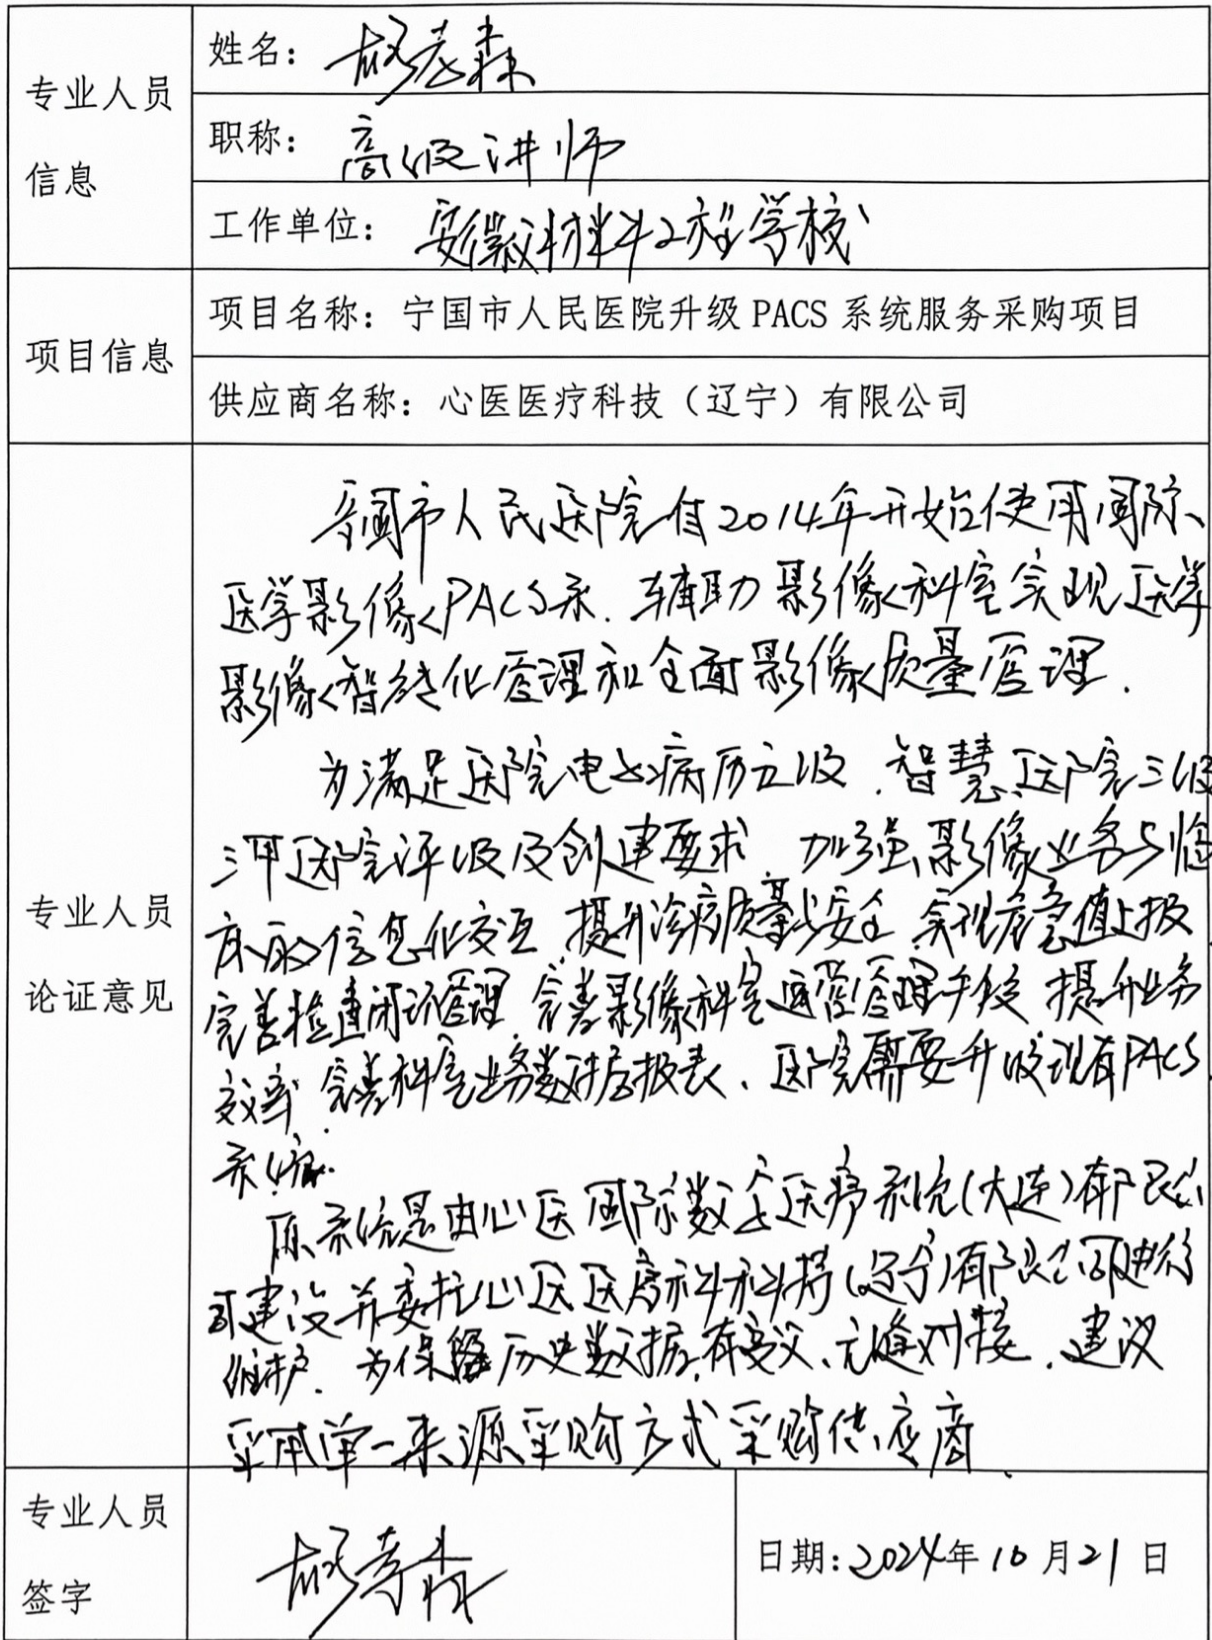 专业人员
信息
姓名：杨孝森
职称：高级讲师
工作单位：安徽材料工程学校
项目信息
项目名称：宁国市人民医院升级 PACS 系统服务采购项目
供应商名称：心医医疗科技（辽宁）有限公司
专业人员
论证意见
宁国市人民医院自2014年开始使用国际
医学影像PACS系. 辅助影像科室实现医学
影像智能化管理和全面影像质量管理.
为满足医院电子病历五级. 智慧医院三级
三甲医院评级及创建要求 加强影像业务与临
床的信息化交互 提升诊疗质量与安全 实现危急值上报
完善检查闭环管理 完善影像科室运营管理手段 提升业务
效率 完善科室业务数据报表、医院需要升级现有PACS
系统.
原系统是由心医国际数字医疗系统(大连)有限公
司建设并委托心医医疗科技(辽宁)有限公司进行
维护. 为保留历史数据,有意义、无缝对接. 建议
采用单一来源采购方式采购供应商.
专业人员
签字
杨孝森
日期:2024年10月21日